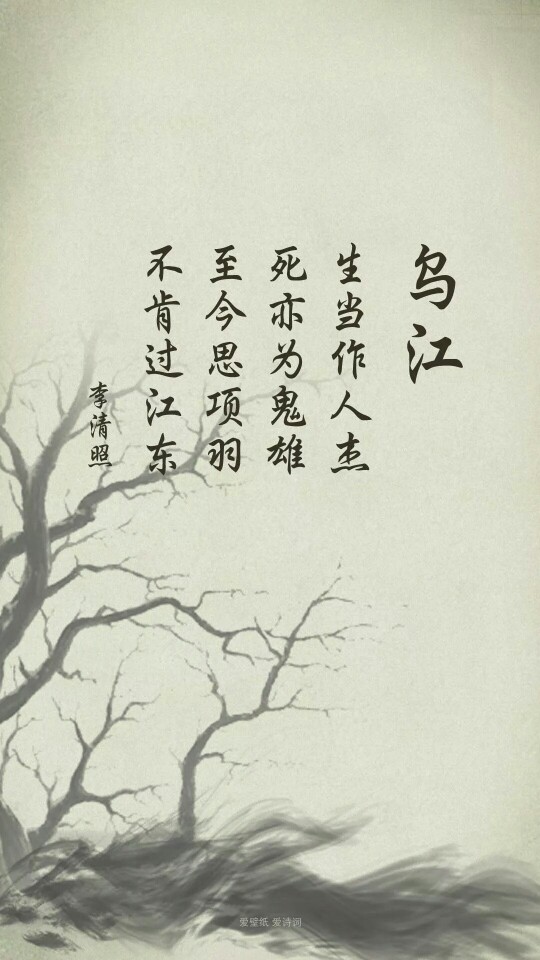 乌江
生当作人杰
死亦为鬼雄
至今思项羽
不肯过江东
李清照
爱壁纸 爱诗词